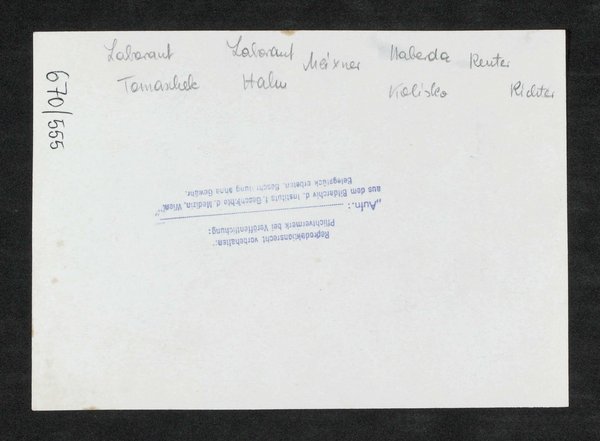 Laborant Laborant Meixner Haberda Reuter
Tomaschek Hahn Kolisko Richter
670/555
Reproduktionsrecht vorbehalten.
Pflichtvermerk bei Veröffentlichung:
„Aufn.:
aus dem Bildarchiv d. Instituts f. Geschichte d. Medizin, Wien."
Belegstück erbeten. Beschriftung ohne Gewähr.